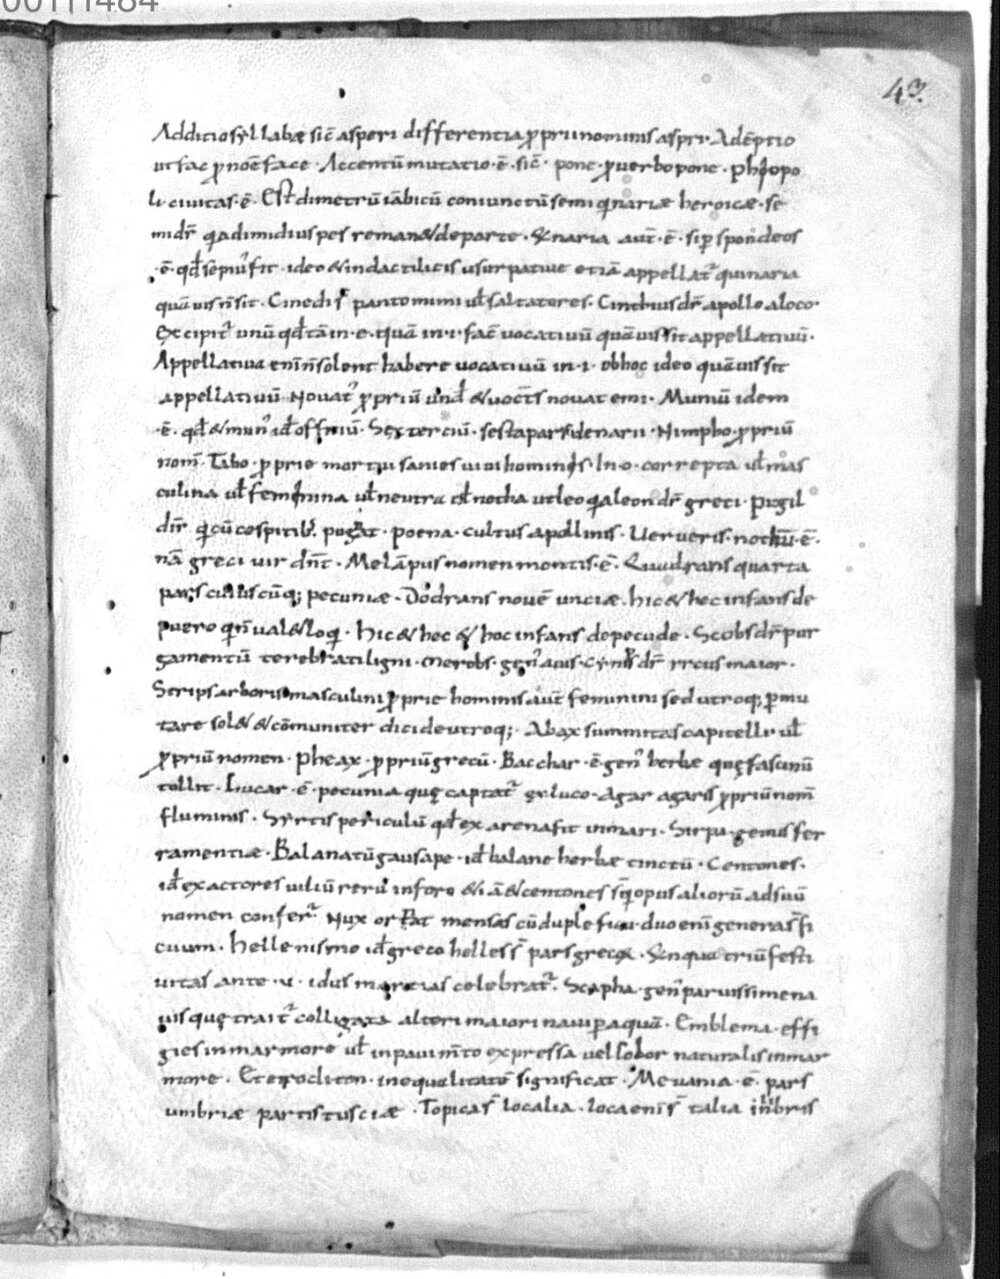 00111484
43.
Additio syllabę sic̄ asperi differentia ꝓprii nominis aspri · Adēptio
ut fac ꝓ noc̄ face · Accentū mutatio · ē · sic̄ · pone · ꝓ uerbo pone ·
li · ciuitas · ē · Est dimetrū iābicū coniunctū semi quinariæ heroicæ · se
dimidius pes reman& de parte · aut̄ · ē · spondeos
· ē · qd̄ sepius fit · ideo & in dactilicis usurpatiue etiā appellat᷑ quinaria
quā uis n̄ sit · Cinedi s̄ pantomimi ul̄ saltatores · Cinthius dr̄ apollo a loco ·
Excipit᷑ unū qd̄ tā in · e · quā in · i · fac̄ uocatiuū quā uis sit appellatiuū ·
Appellatiua eni n̄ solent habere uocatiuū in · i · ob hoc ideo quā uis sit
appellatiuū Nouat᷑ ꝓpriū und̄ & uoc̄ts nouat emi · Muniū idem
· ē · qd̄ & mun᷑ id̄ officiū · Sextertiū · sesta pars denarii · Nimpho · ꝓpriū
nom̄ · Tabo · ꝓprie mortui sanies uiui hominis · In · o · correpta ul̄ mas
culina ul̄ feminina ul̄ neutra ul̄ notha ut leo qa leon dr̄ greci · Pugil
dir̄ qi cū cospitib᷑ pugat · poena · cultus apollinis · Uer ueris · nothū · ē ·
nā greci uir dnt̄ · Melāpus nomen montis · ē · Quadrans quarta
pars cuiuscūq; pecuniæ · Dodrans nouē unciæ · hic & hec infans de
puero qi n̄ ual& loqi · hic & hec & hoc infans de pecude · Scobs dr̄ pur
gamentū terebrati ligni · merobs · gen᷑ auis · dr̄ maior ·
arboris masculini ꝓprie hominis aut̄ feminini sed utroq; ꝑmu
tare sol& & cōmuniter dici de utroq; · Abax summitas capitelli ul̄
ꝓpriū nomen · Pheax · ꝓpriū grecū · Bacchar · ē gen᷑ herbæ quę fascinū
tollit · Lucar · ē · pecunia quę captat᷑ ex luco · Agar agaris ꝓpriū nom̄
fluminis · Syrtis periculū qd̄ ex arena fit in mari · Sirpi · genus fer
ramentiæ · Balanatū gausape · id̄ balane herbæ tinctū · Centones ·
id̄ exactores uiliū rerū in foro & centones opus aliorū ad suū
nomen confer᷑ Nux ornat mensas cū duplę ficu · duo eni genera s̄ fi
cuum · hellenismo id̄ greco helles s̄ pars gręcę · triū festi
uitas ante · u · idus martias celebrat᷑ · Scapha · gen᷑ paruissime na
uis quę trait᷑ colligata alteri maiori naui ꝑ aquā · Emblema · effi
gies in marmore ul̄ in pauim̄to expressa uel color naturalis in mar
more · Eterocliton · inequalitatē significat · Meuania · ē · pars
umbriæ partis tusciæ · Topica s̄ localia · loca eni s̄ talia in libris